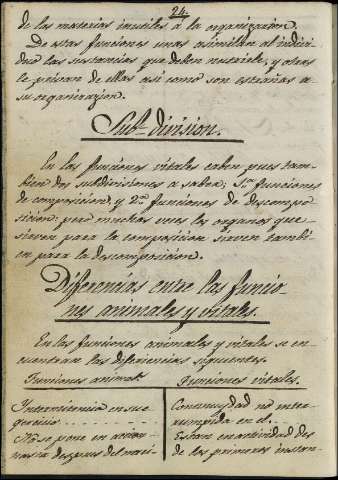 24.
de las materias inutiles á la organizacion.
De estas funciones unas asimilan al indivi-
duo las sustancias que deben nutrirle, y otras
le privan de ellas asi como son estrañas a
su organizacion.
Sub-division.
En las funciones vitales caben pues tam-
bien dos subdivisiones a saber, 1.as funciones
de composicion, y 2.as funciones de descompo-
sicion: pero muchas veces los organos que
sirven para la composicion sirven tambi-
en para la descomposicion.
Diferencias entre las funcio-
nes animales y vitales.
En las funciones animales y vitales se en-
cuentran las diferencias siguentes.
Funciones animal.s
Intermitencia en su e-
gercicio
No se pone en accion
hasta despues del naci-
Funciones vitales.
Continuydad no inter-
rumpida en el.
Estan en actividad des
de los primeros instan-